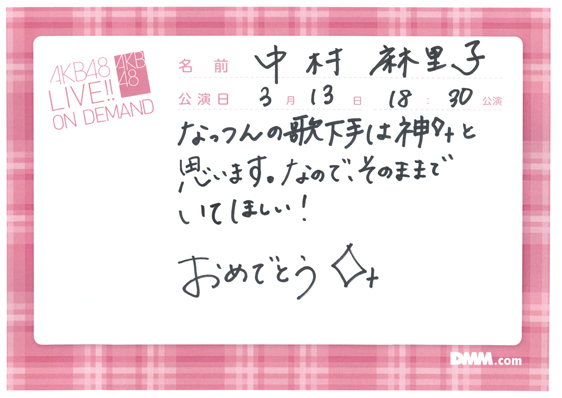 AKB48
LIVE!!
ON DEMAND
AKB
48
名前 中村 麻里子
公演日 3月13日 18:30公演
なっつんの歌下手は神タと
思います。なので、そのままで
いてほしい！
おめでとう
DMM.com